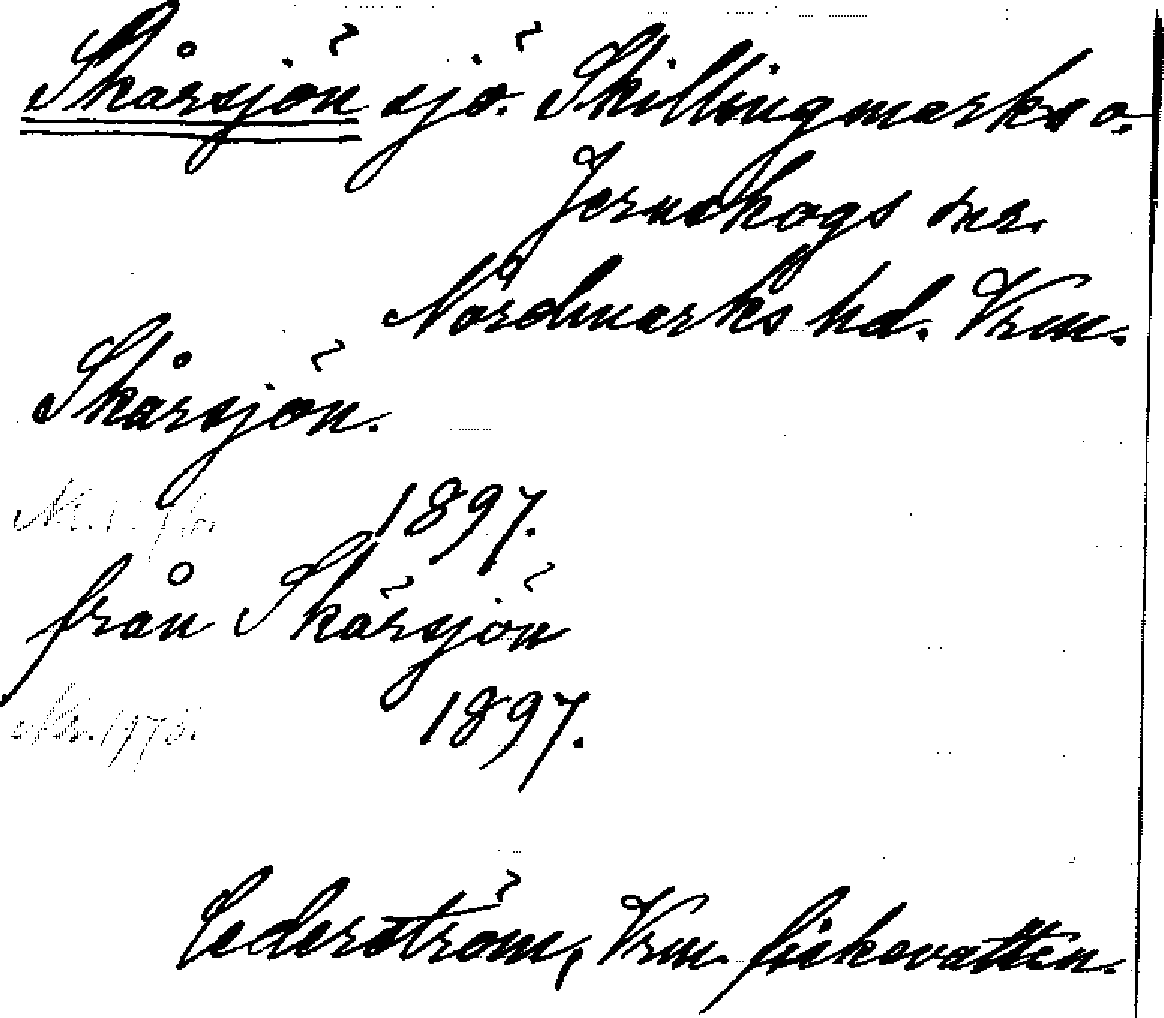 Skårsjön sjö. Skillingmarks o.
Jernskogs snr.
Nordmarks hd. Vrm.
Skårsjön.
1897.
från Skärsjön
1897.
Cederström, Vrm. fiskevatten.